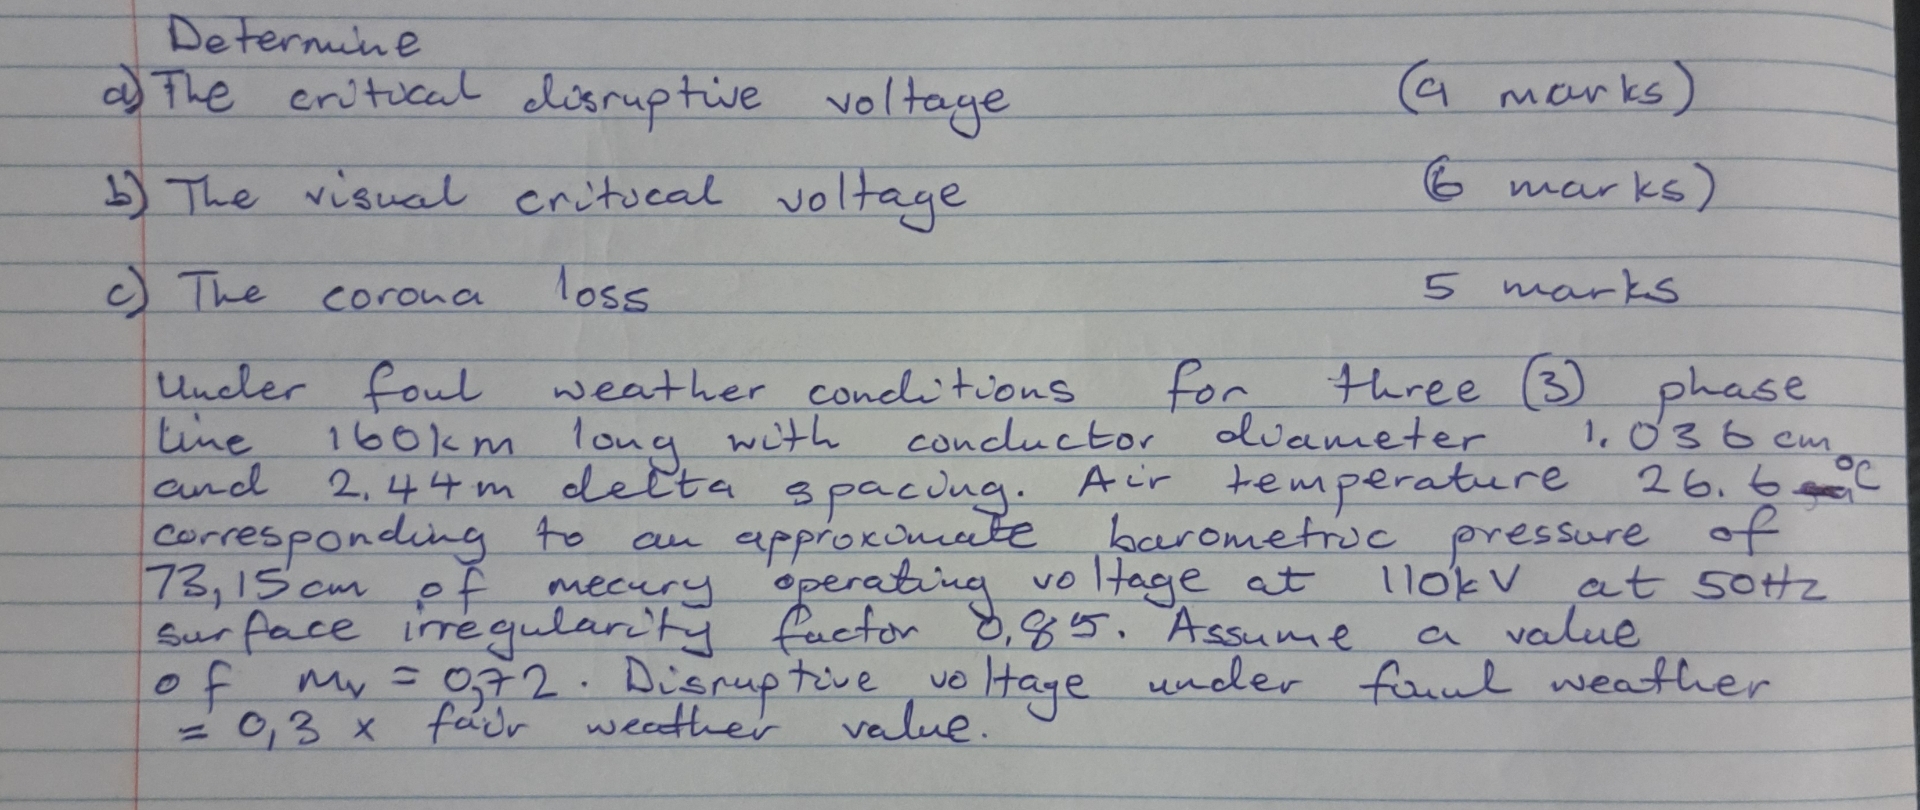 Determine
a) The critical disruptive voltage (9 marks)
b) The visual critical voltage (6 marks)
c) The corona loss 5 marks
Under foul weather conditions for three (3) phase
line 160km long with conductor diameter 1.036 cm
and 2.44m delta spacing. Air temperature 26.6 °C
corresponding to an approximate barometric pressure of
73,15cm of mecury operating voltage at 110kV at 50Hz
surface irregularity factor 0,85. Assume a value
of Mv = 0,72. Disruptive voltage under foul weather
= 0,3 x fair weather value.